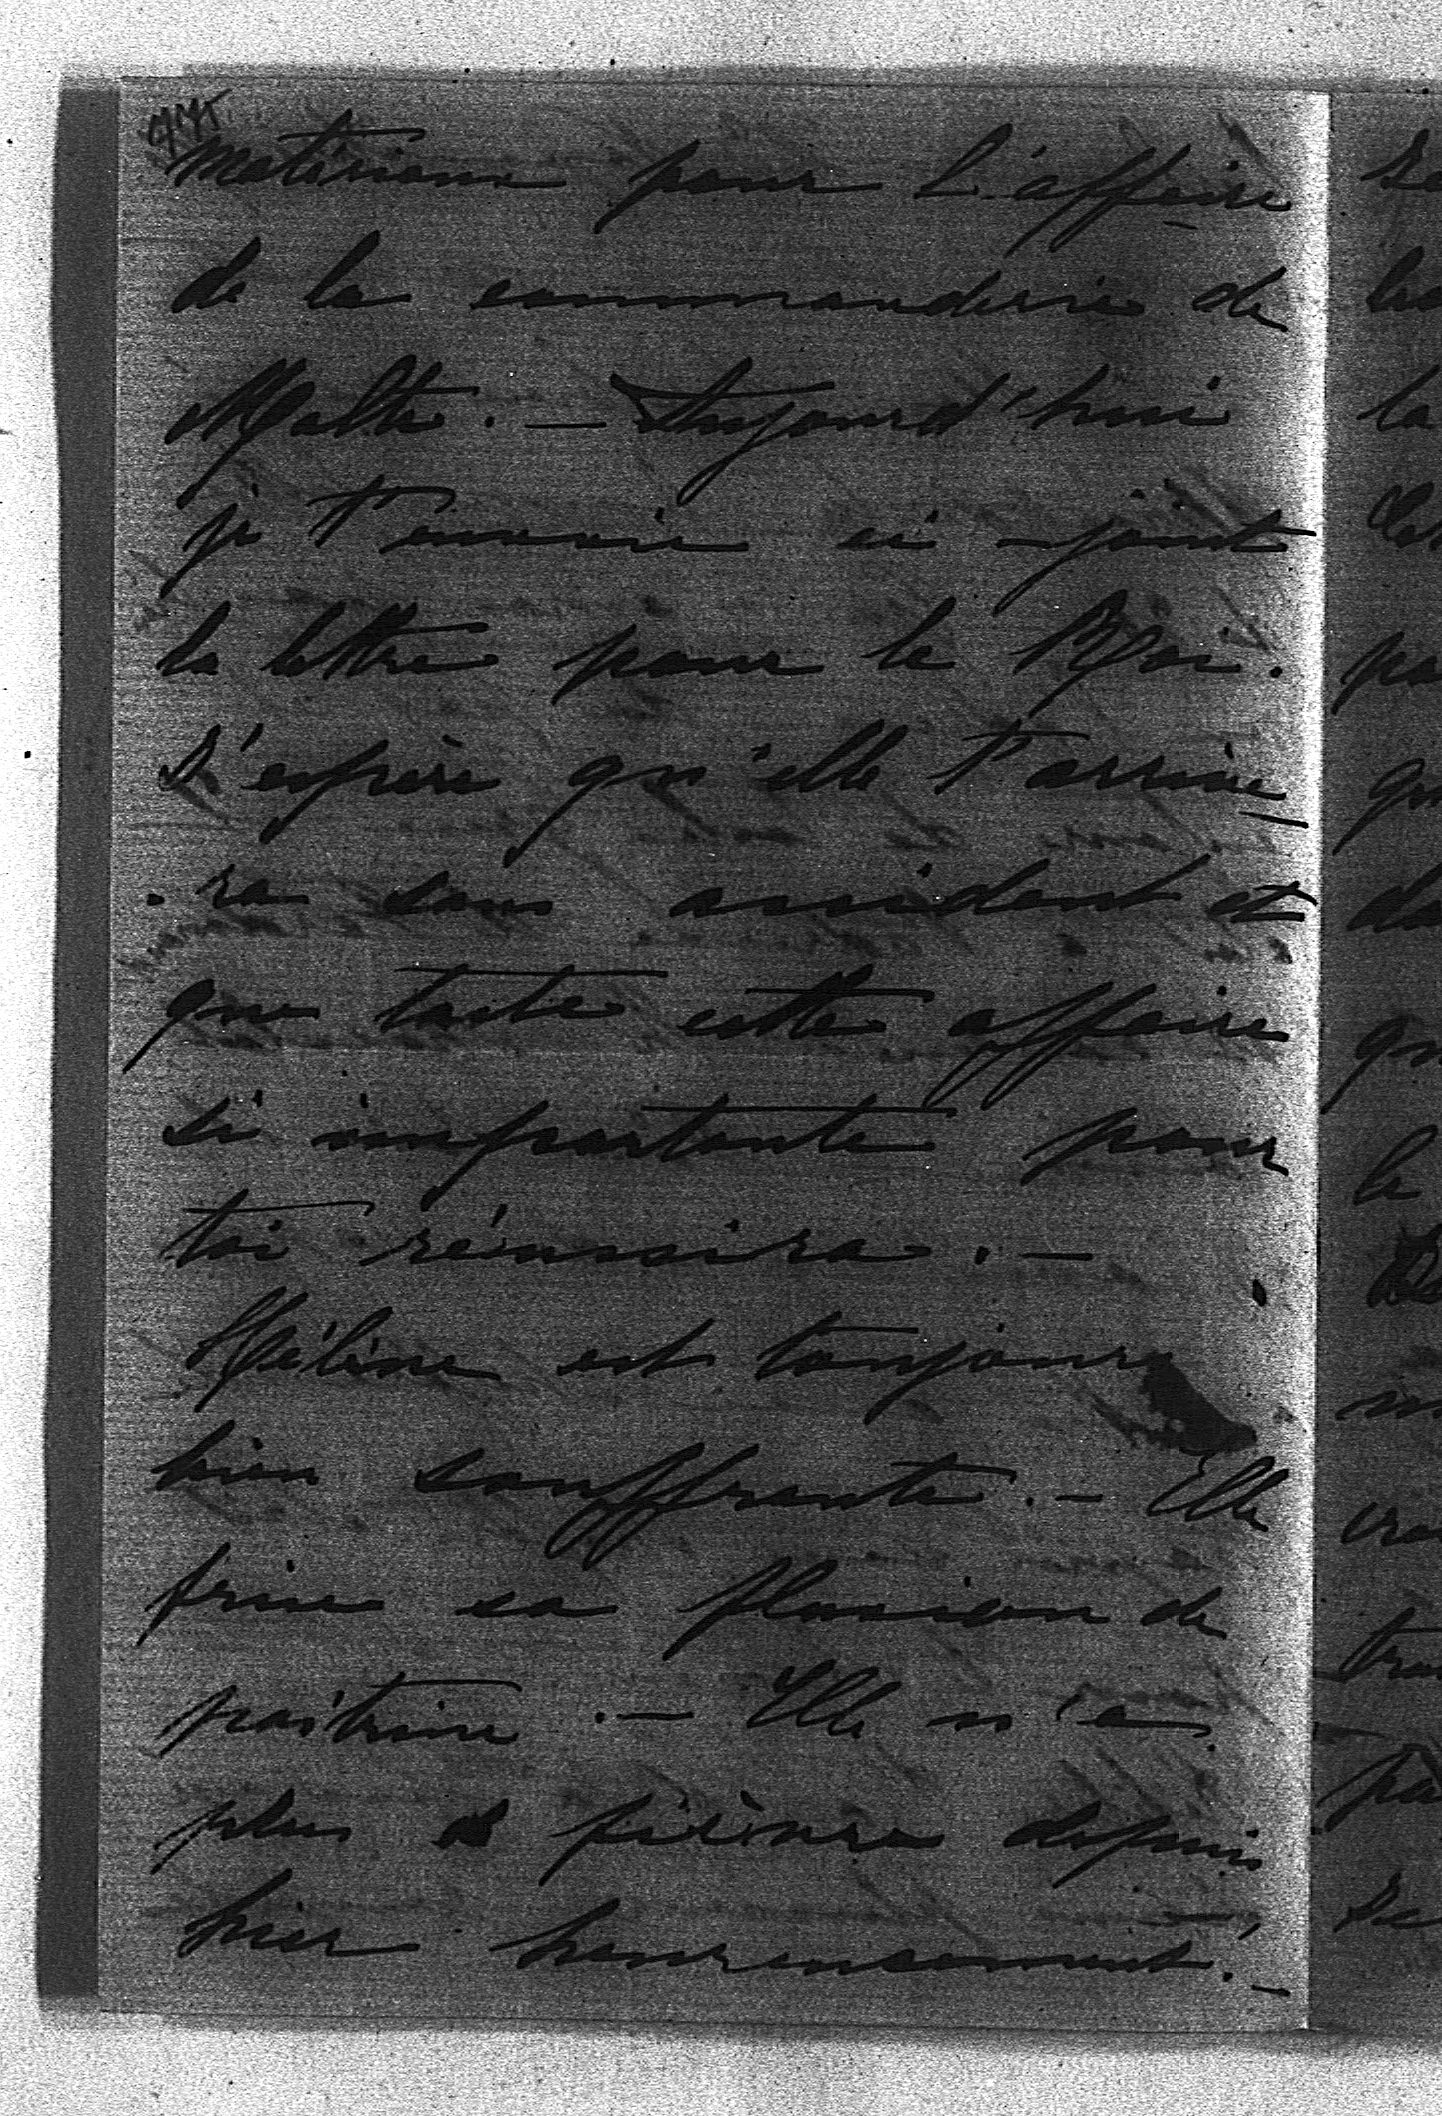 matériaux pour l'affaire
de la commanderie de
Malte. — Aujourd'hui
je t'envoie ci-joint
la lettre pour le Roi.
J'espère qu'elle t'arrive
-ra sans accident et
que toute cette affaire
si importante pour
toi réussira. —
Hélène est toujours
bien souffrante. — Elle
finie sa fluxion de
poitrine. — Elle n'a
plus de fièvre depuis
hier heureusement. —